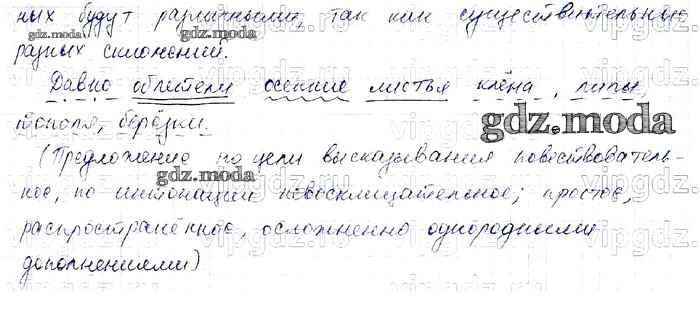 ных будут различными, так как существительные
gdz.moda
разных склонений.
gdz.moda
Давно облетели осенние листья клёна, липы,
тополя, берёзки.
gdz.moda
(Предложение по цели высказывания повествователь-
gdz.moda
ное, по интонации невосклицательное; простое,
распространённое, осложненно однородными
vipgdz.ru
дополнениями)
gdz.moda